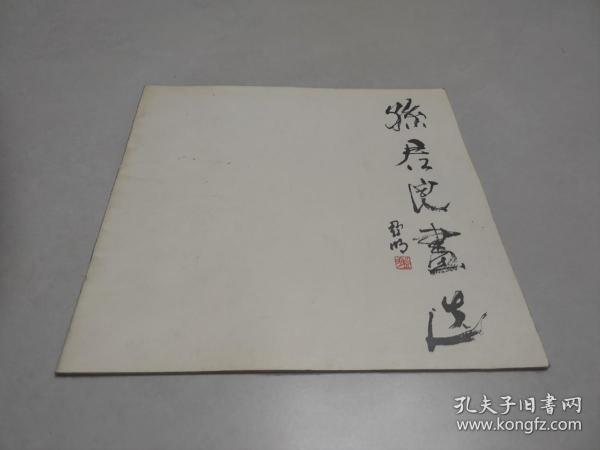 孫君良畫选
亚明
孔夫子旧書网
www.kongfz.com